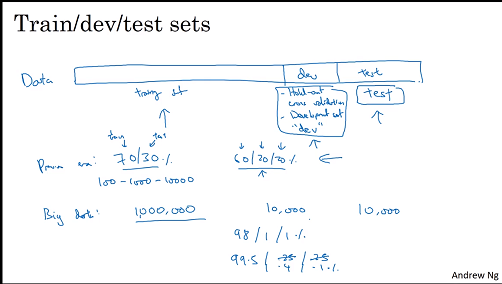 Train/dev/test sets
Data
dev
test
training set
- Hold-out
cross validation
- Development set
"dev"
test
train
test
Previous era:
70/30 %
60/20/20 %
100-1000-10000
Big data:
1,000,000
10,000
10,000
98/1/1 %
99.5 / .25 / .25
.4 .1 %
Andrew Ng